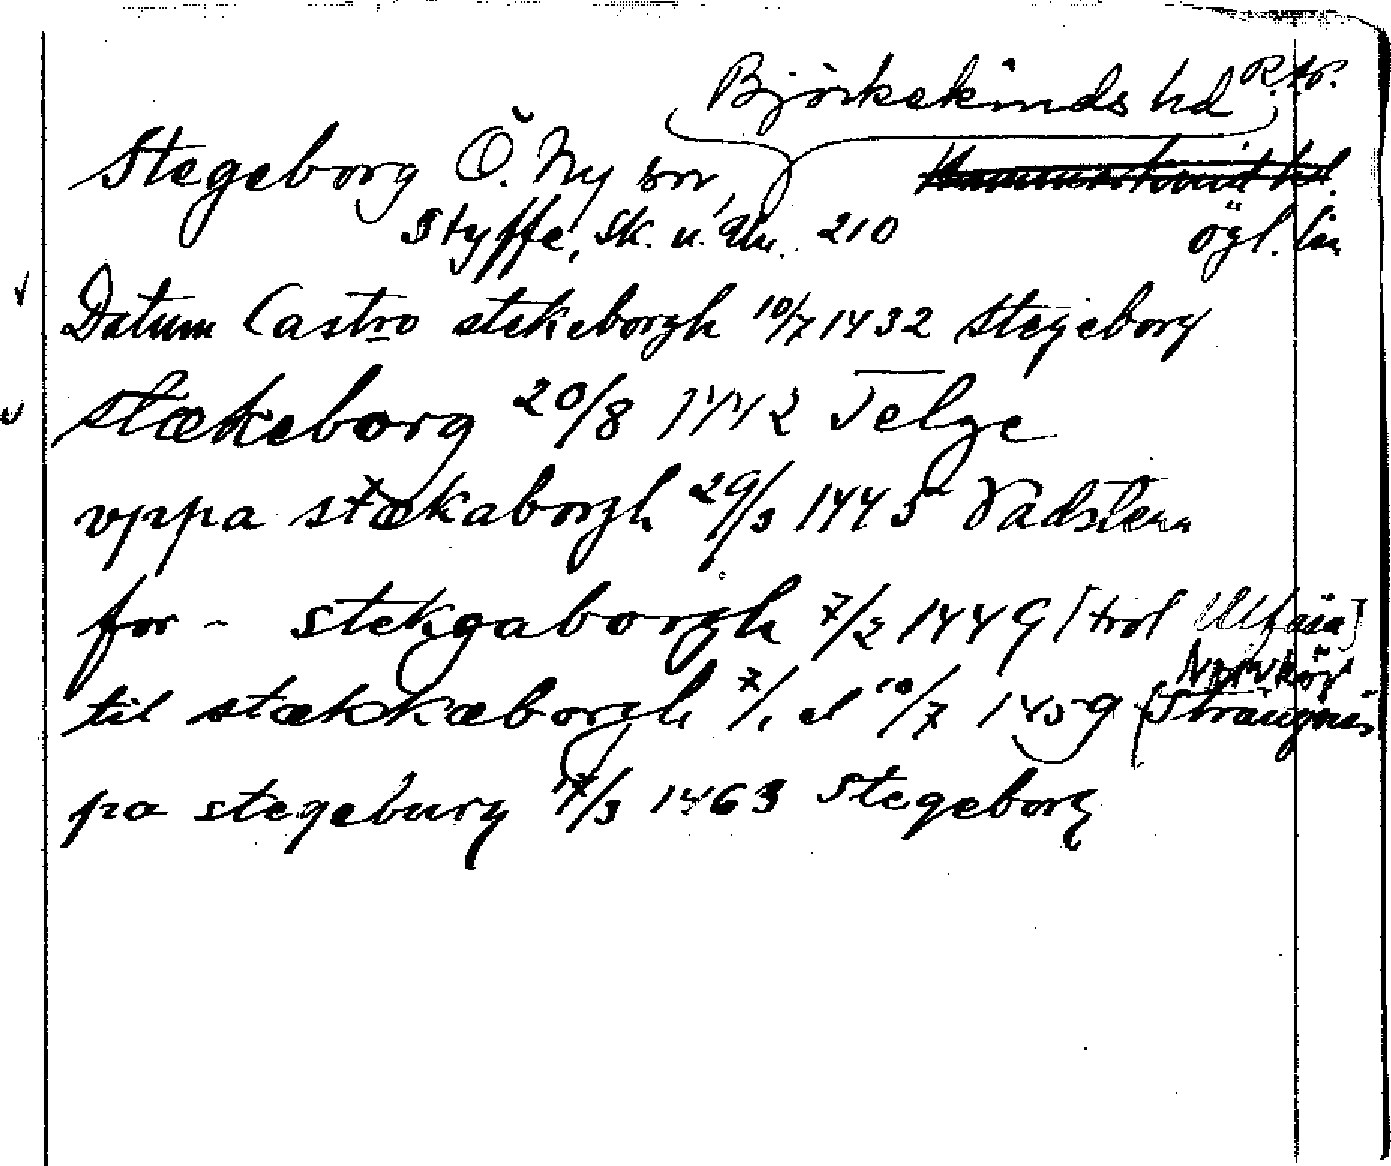 Björkekinds hd
Stegeborg Ö. Ny sn,
Styffe, Sk. u. Un. 210 ögl. län
Datum Castro stekeborgh 10/7 1432 Stegeborg
stækeborg 20/8 1442 Telge
vppa stækaborgh 29/3 1445 Vadstena
for - stekgaborgh 7/2 1449 [trol Ulfåsa]
Norrköp
til stækkæborgh 7/1 el 10/7 1459 (Strängnäs
pa stegeburg 17/3 1463 Stegeborg